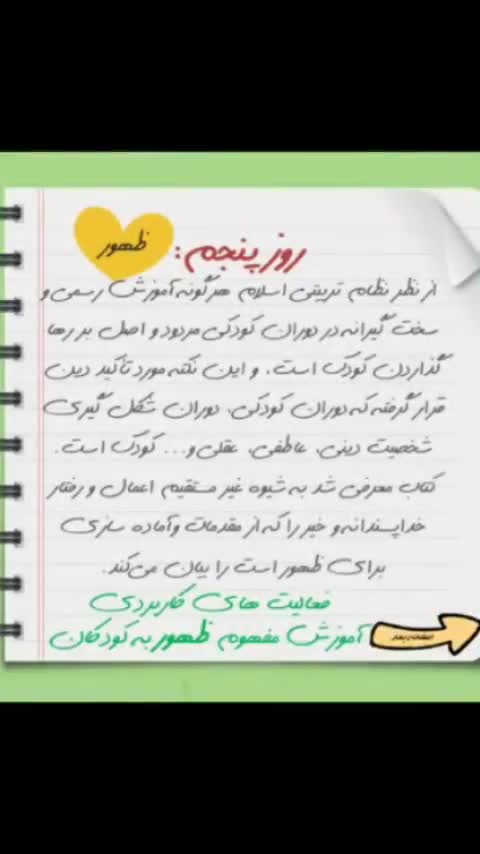 روز پنجم:
ظهور
از نظر نظام تربیتی اسلام هرگونه آموزش رسمی و
سخت گیرانه در دوران کودکی مردود و اصل بر رها
گذاردن کودک است. و این نکته مورد تاکید دین
قرار گرفته که دوران کودکی، دوران شکل گیری
شخصیت دینی، عاطفی، عقلی و... کودک است.
کتاب معرفی شد به شیوه غیر مستقیم اعمال و رفتار
خداپسندانه و خیر را که از مقدمات و آماده سازی
برای ظهور است را بیان می‌کند.
فعالیت های کاربردی
آموزش مفهوم ظهور به کودکان
صفحه بعد